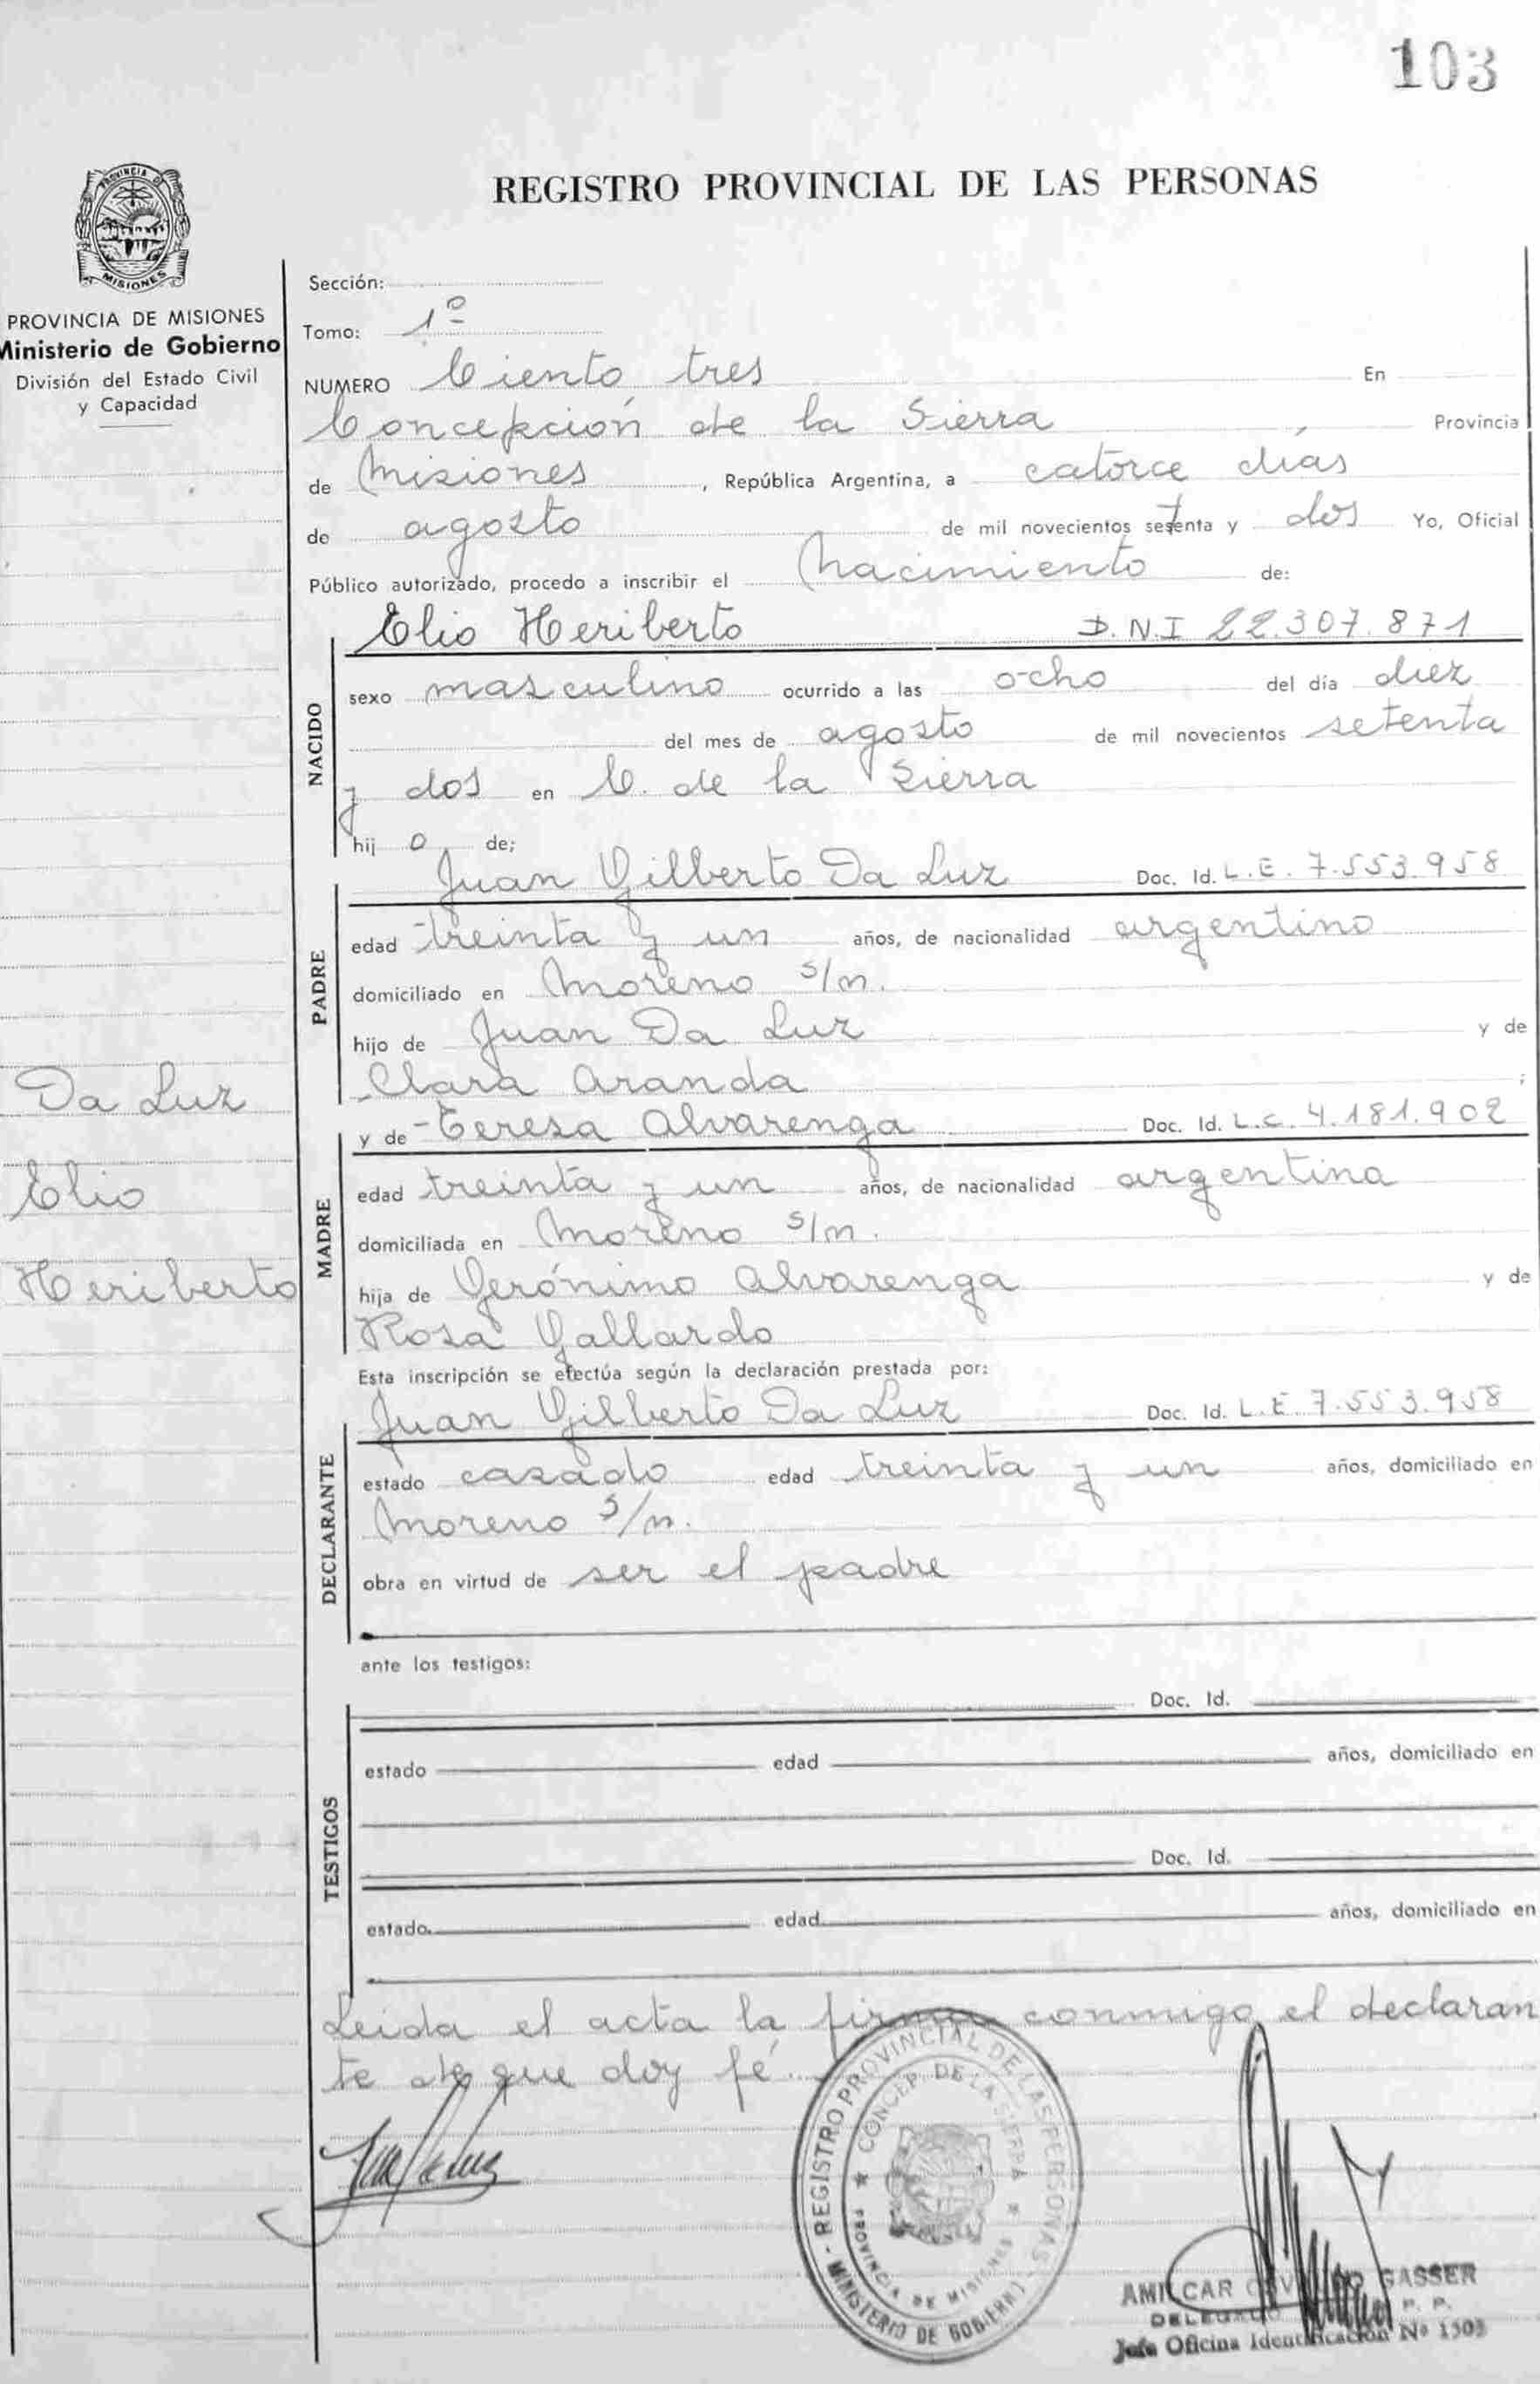 103
REGISTRO PROVINCIAL DE LAS PERSONAS
PROVINCIA DE
MISIONES
PROVINCIA DE MISIONES
Ministerio de Gobierno
División del Estado Civil
y Capacidad
Sección:
Tomo: 1º
NUMERO Ciento tres En
Concepción de la Sierra Provincia
de Misiones, República Argentina, a catorce días
de agosto de mil novecientos setenta y dos Yo, Oficial
Público autorizado, procedo a inscribir el Nacimiento de:
NACIDO
Elio Heriberto D.N.I 22.307.871
sexo masculino ocurrido a las ocho del día diez
del mes de agosto de mil novecientos setenta
y dos en C. de la Sierra
hij o de;
PADRE
Juan Gilberto Da Luz Doc. Id. L.E. 7.553.958
edad treinta y un años, de nacionalidad argentino
domiciliado en Moreno s/n.
hijo de Juan Da Luz y de
Clara Aranda ;
MADRE
y de Teresa Alvarenga Doc. Id. L.C. 4.181.902
edad treinta y un años, de nacionalidad argentina
domiciliada en Moreno s/n.
hija de Gerónimo Alvarenga y de
Rosa Gallardo
Da Luz
Elio
Heriberto
Esta inscripción se efectúa según la declaración prestada por:
DECLARANTE
Juan Gilberto Da Luz Doc. Id. L.E 7.553.958
estado casado edad treinta y un años, domiciliado en
Moreno s/n.
obra en virtud de ser el padre
ante los testigos:
TESTIGOS
Doc. Id.
estado edad años, domiciliado en
Doc. Id.
estado edad años, domiciliado en
Leida el acta la firma conmigo el declaran
te de que doy fé.
REGISTRO PROVINCIAL DE LAS PERSONAS - MINISTERIO DE GOBIERNO -
CONCEP. DE LA SIERRA
PROVINCIA DE MISIONES
AMILCAR GASSER
DELEGADO P. P.
Jefe Oficina Identificación Nº 1503